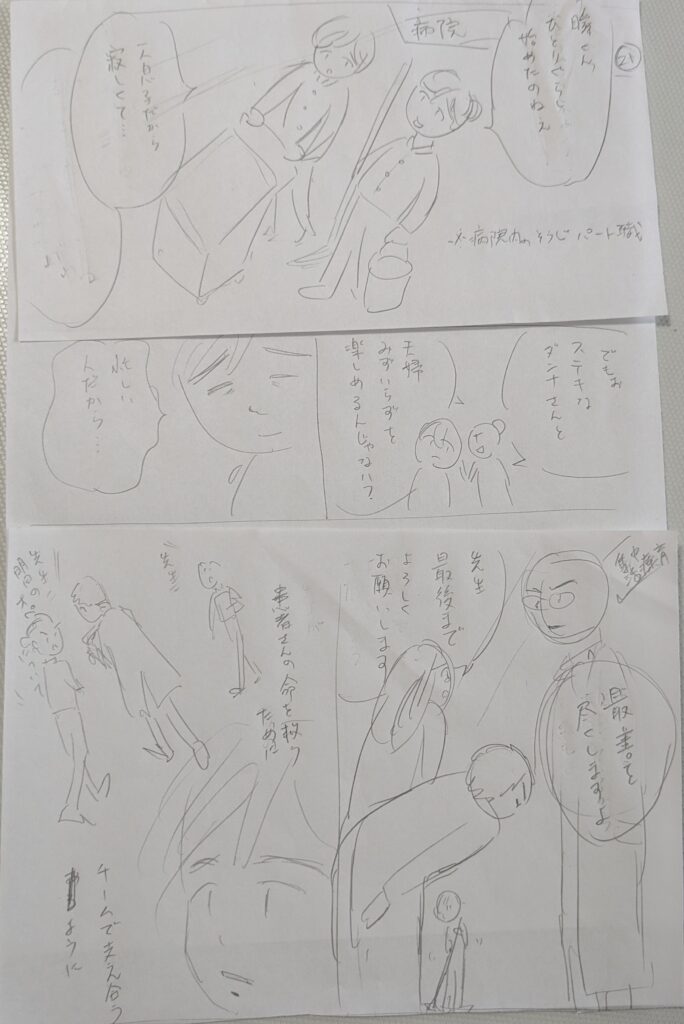 21
病院
始めたのねえ
一人息子だから
寂しくて…
病院内のそうじパート職
でもお
ステキな
ダンナさんと
夫婦
みずいらずを
楽しめるんじゃない?
忙しい
人だから…
最善を
尽くしますよ
先生
最後まで
よろしく
お願いします
患者さんの命を救う
ために
先生
先生
チームで支え合う
ように